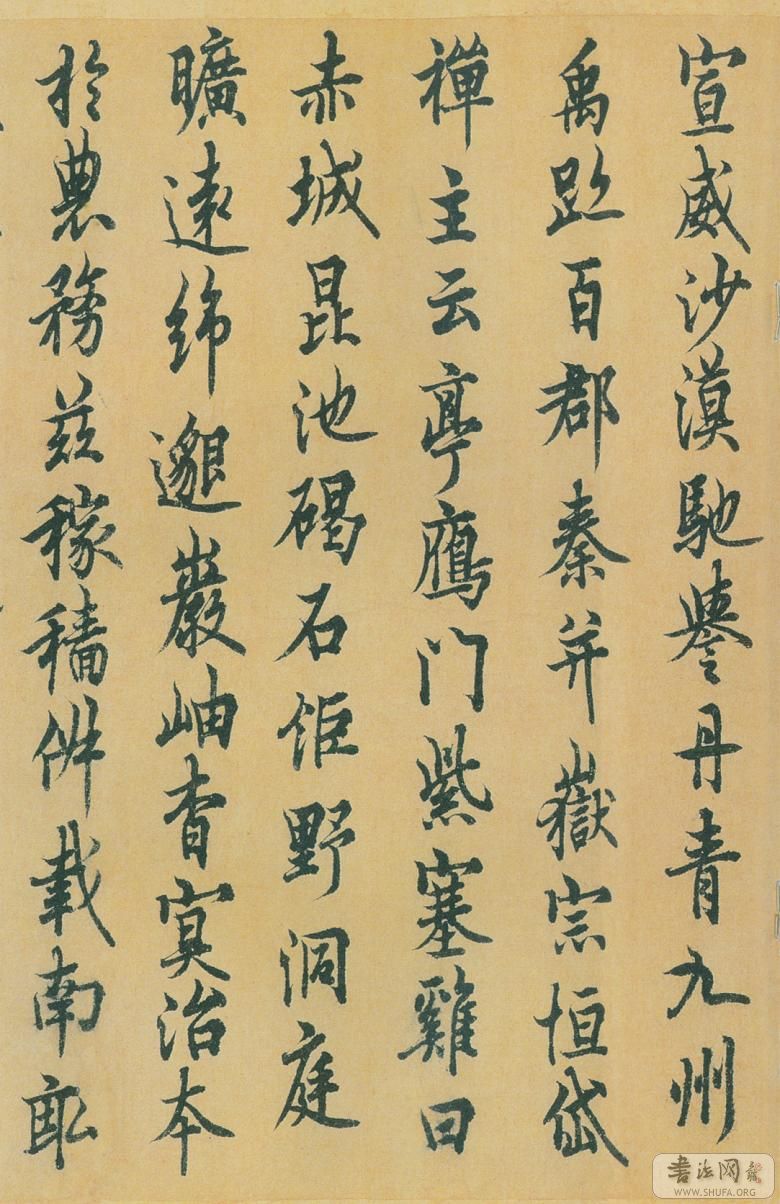 宣威沙漠馳譽丹青九州
禹跡百郡秦并嶽宗恒岱
禪主云亭鴈門紫塞雞曰
赤城昆池碣石鉅野洞庭
曠遠綿邈巖岫杳冥治本
於農務茲稼穡俶載南畝
書法网
WWW.SHUFA.ORG